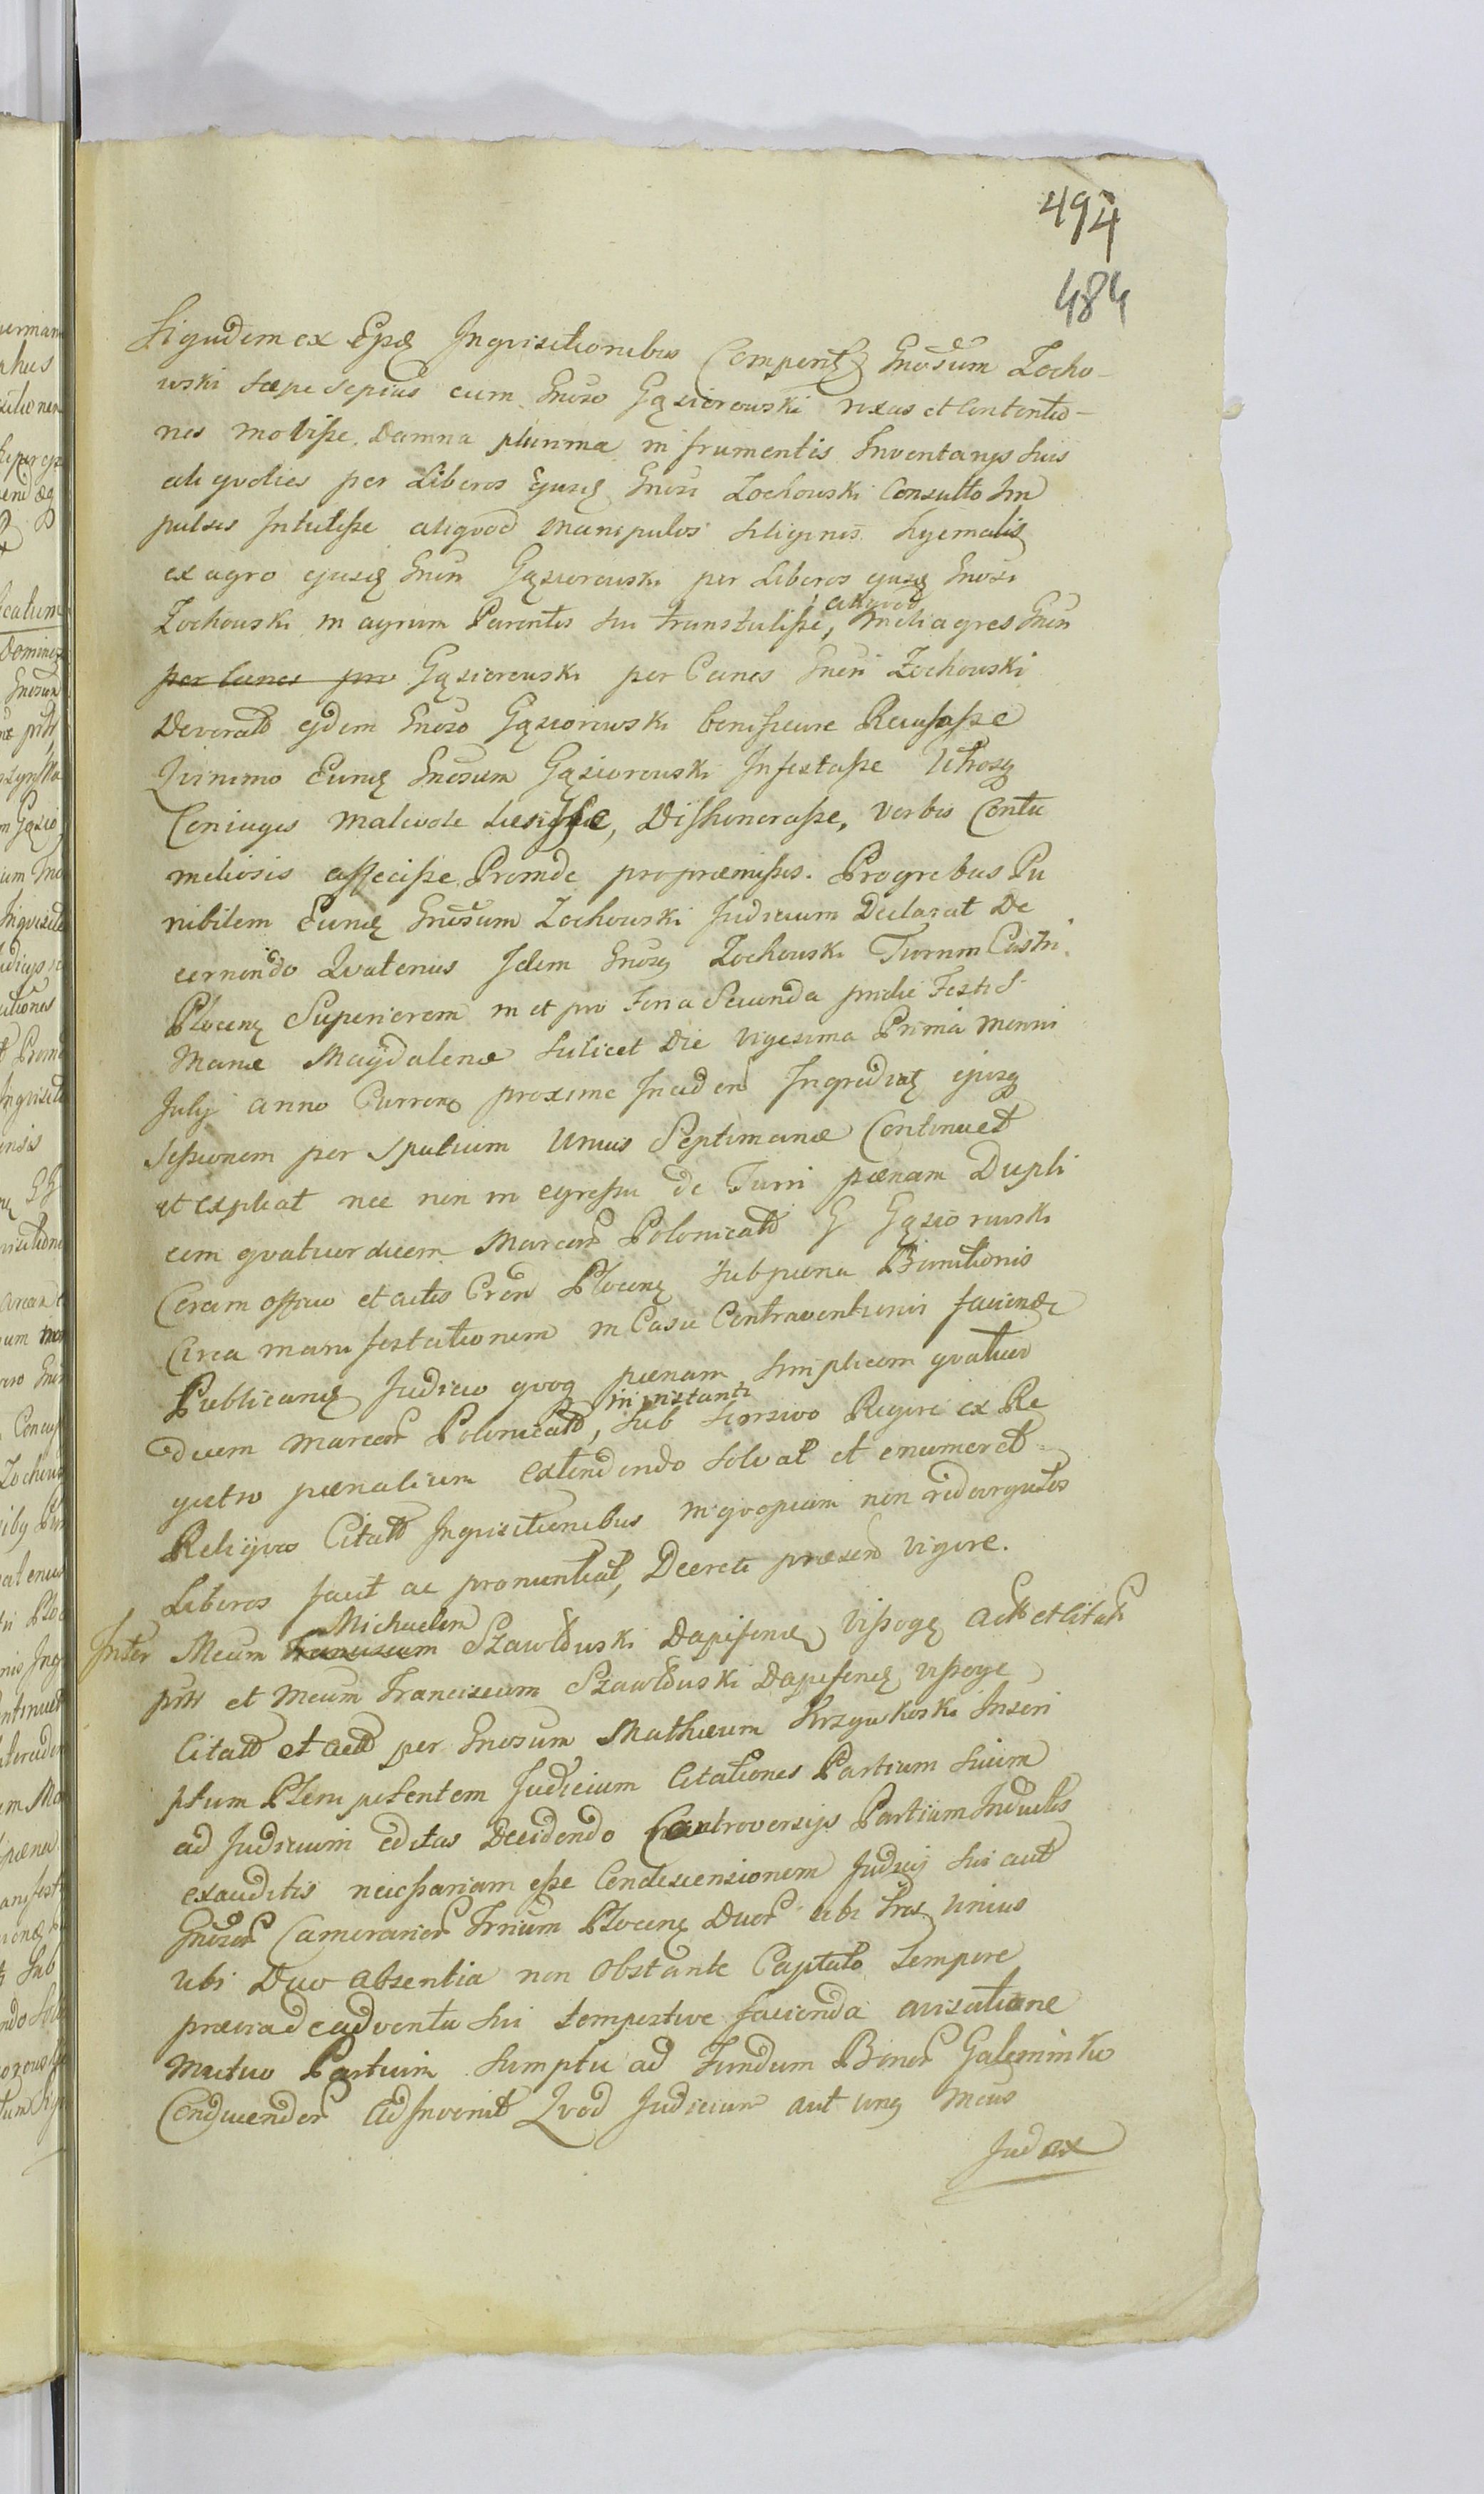 494
484
Siquidem ex Ejsdę Inquisitionibus Comperitę Gnosum Zocho-
wski sæpe sepius cum Gnoso Gąsiorowski rixas et Contentio-
nes movisse. Damna plurima in frumentis Inventarys suis
aliqvoties per Liberos Ejusdę Gnosi Zochowski Consulto Im
pulsis Intulisse aliqvod Manipulos siliginis hyemalis
ex agro ejusdę Gnosi Gąsiorowski per Liberos ejusdę Gnosi
Zochowski in agrum Parentis sui transtulisse, aliqvod meliagres Gnosi
per Canes pro Gąsiorowski per Canes Gnosi Zochowski
Devorato ejdem Gnoso Gąsiorowski bonificare Recusasse
Quinimo Eumdę Gnosum Gąsiorowski Infestasse Utrosq
Coniuges malevole Læsisse, Dishonorasse, verbis Contu
meliosis affecisse. Proinde pro præmissis. Progrebus Pu
nibilem Eumdę Gnosum Zochowski Judicium Declarat De
cernendo Qvatenus Idem Gnosus Zochowski Turrim Castri
Plocenę Superiorem in et pro Feria Secunda pridie Festi S.
Mariæ Magdalenæ scilicet Die Vigesima Prima Mensis
July anno Curren proxime Inciden Ingrediatę ejusq
sessionem per spatium Unius Septimanæ Continuet
et expleat nec non in egressu de Turri pœnam Dupli
cem qvatuordecem Marcar Polonicalo G Gąsiorowski
Coram officio et actis Cren Plocenę sub pœna Bannitionis
Circa manifestationem in Casu Contraventionis faciendę
Publicandę Judicio qvoq pœnam simplicem qvatuor
decem marcar Polonicalo, in instanti sub sinsivo Rigore ex Re
gestro pœnalium extendendo solvat et enumeret
Reliqvos Citato Inquisitionibus in qvopiam non redargutos
Liberos facit ac pronuntiat, Decreti præsen vigore.
Inter Meum Franciscum Michaelem Szawłowski Dapiferidę Vissogę act et citat
ptu et Meum Franciscum Szawłowski Dapiferidę Vissogę
Citato et acto per Gnosum Mathæum Krzywkoski Inscri
ptum Plem petentem Judicium Citationes Partium suum
ad Judicium editas Decidendo Controversys Partium Inductis
exauditis necessariam esse Condescensionem Judicy sui aut
Gnosor Camerarior Trium Plocenę Duor ubi Tres Unius
ubi Duo absentia non Obstante Captato tempore
prævia de adventu sui tempestive facienda avisatione
Mutuo Partium sumptu ad Fundum Bonor Galeminko
Conducendor Adinvenit Qvod Judicium aut Unq Meus
Judex